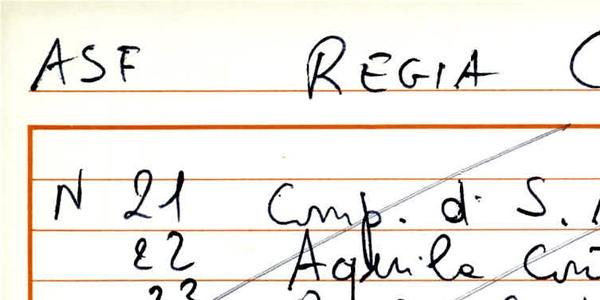 ASF REGIA
N 21 Comp. di S.
22 Aquila
23